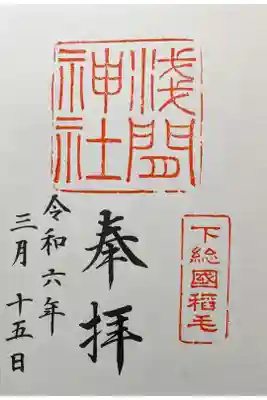 下総國稻毛
浅間
神社
奉拝
令和六年
三月十五日